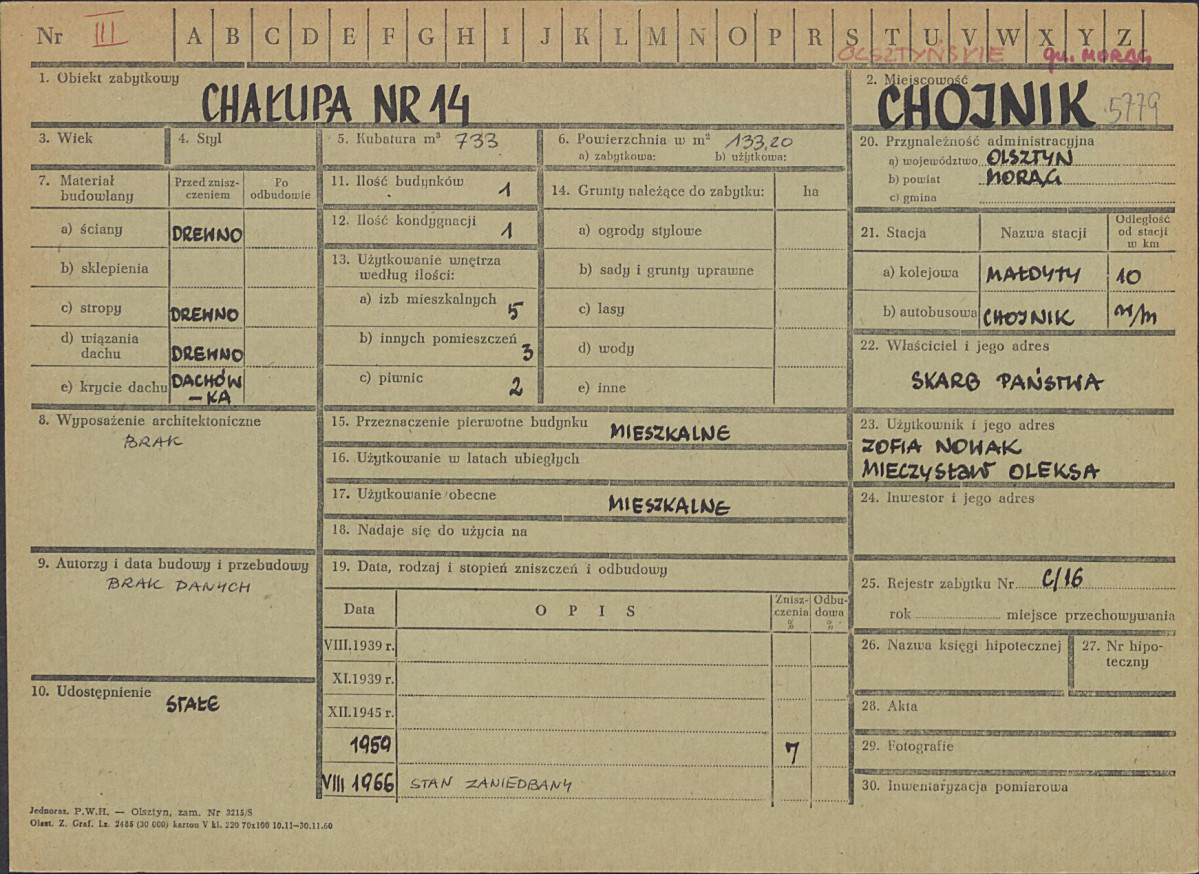 Nr III A B C D E F G H I J K L M N O P R S T U V W X Y Z
OLSZTYŃSKIE gm. MORĄG
1. Obiekt zabytkowy
CHAŁUPA NR 14
2. Miejscowość
CHOJNIK 5779
3. Wiek
4. Styl
5. Kubatura m³ 733
6. Powierzchnia w m² 133,20
a) zabytkowa: b) użytkowa:
7. Materiał budowlany
Przed znisz-
czeniem
Po
odbudowie
a) ściany DREWNO
b) sklepienia
c) stropy DREWNO
d) wiązania
dachu DREWNO
e) krycie dachu DACHÓW
-KA
8. Wyposażenie architektoniczne
BRAK
9. Autorzy i data budowy i przebudowy
BRAK DANYCH
10. Udostępnienie
STAŁE
11. Ilość budynków 1
12. Ilość kondygnacji 1
13. Użytkowanie wnętrza
według ilości:
a) izb mieszkalnych 5
b) innych pomieszczeń 3
c) piwnic 2
14. Grunty należące do zabytku: ha
a) ogrody stylowe
b) sady i grunty uprawne
c) lasy
d) wody
e) inne
15. Przeznaczenie pierwotne budynku MIESZKALNE
16. Użytkowanie w latach ubiegłych
17. Użytkowanie obecne MIESZKALNE
18. Nadaje się do użycia na
19. Data, rodzaj i stopień zniszczeń i odbudowy
Data OPIS
Znisz-
czenia
%
Odbu-
dowa
%
VIII.1939 r.
XI.1939 r.
XII.1945 r.
1959 7
VIII 1966 STAN ZANIEDBANY
20. Przynależność administracyjna
a) województwo OLSZTYN
b) powiat MORĄG
c) gmina
21. Stacja Nazwa stacji
Odległość
od stacji
w km
a) kolejowa MAŁDYTY 10
b) autobusowa CHOJNIK m/m
22. Właściciel i jego adres
SKARB PAŃSTWA
23. Użytkownik i jego adres
ZOFIA NOWAK
MIECZYSŁAW OLEKSA
24. Inwestor i jego adres
25. Rejestr zabytku Nr C/16
rok miejsce przechowywania
26. Nazwa księgi hipotecznej
27. Nr hipo-
teczny
28. Akta
29. Fotografie
30. Inwentaryzacja pomiarowa
Jednoraz. P.W.H. — Olsztyn, zam. Nr 3215/S
Olszt. Z. Graf. Lz. 2485 (30 000) karton V kl. 220 70x100 10.11—30.11.60